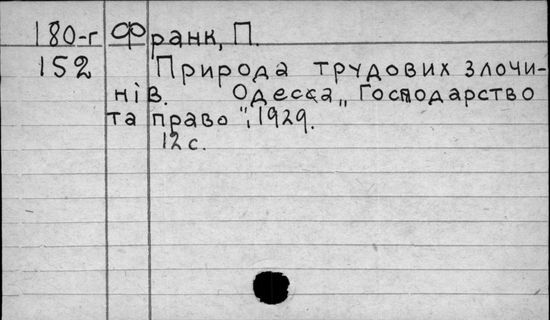 180-г Франк, П.
152 Природа трудових злочи-
нів. Одесса „Господарство
та право", 1929.
12 с.